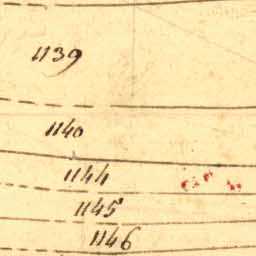 1139
1140
1144
1145
1146